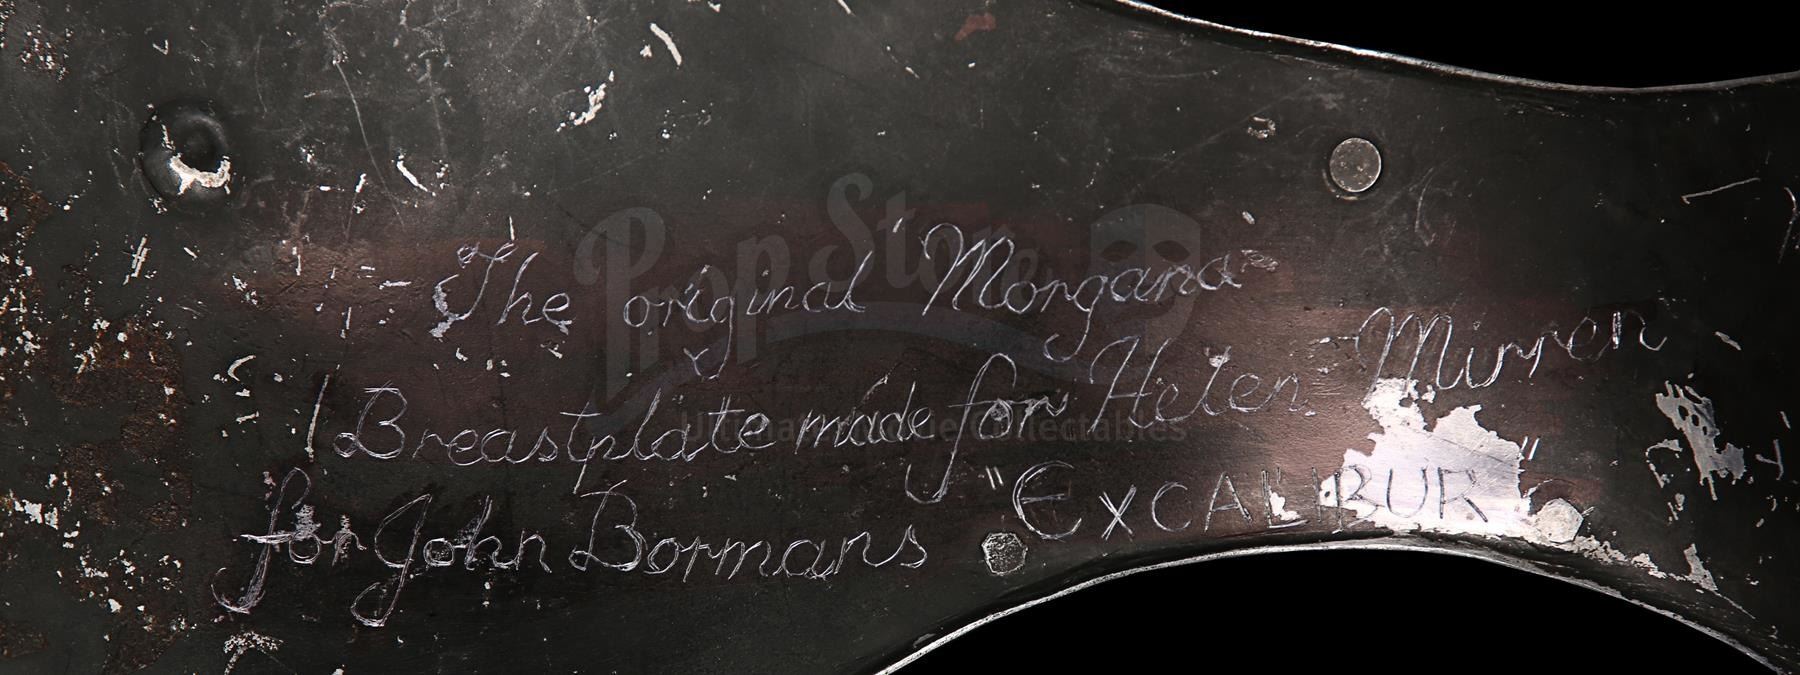 The original Morgana
Breastplate made for Helen Mirren
for John Bormans "EXCALIBUR"
Prop Store
Ultimate Movie Collectables